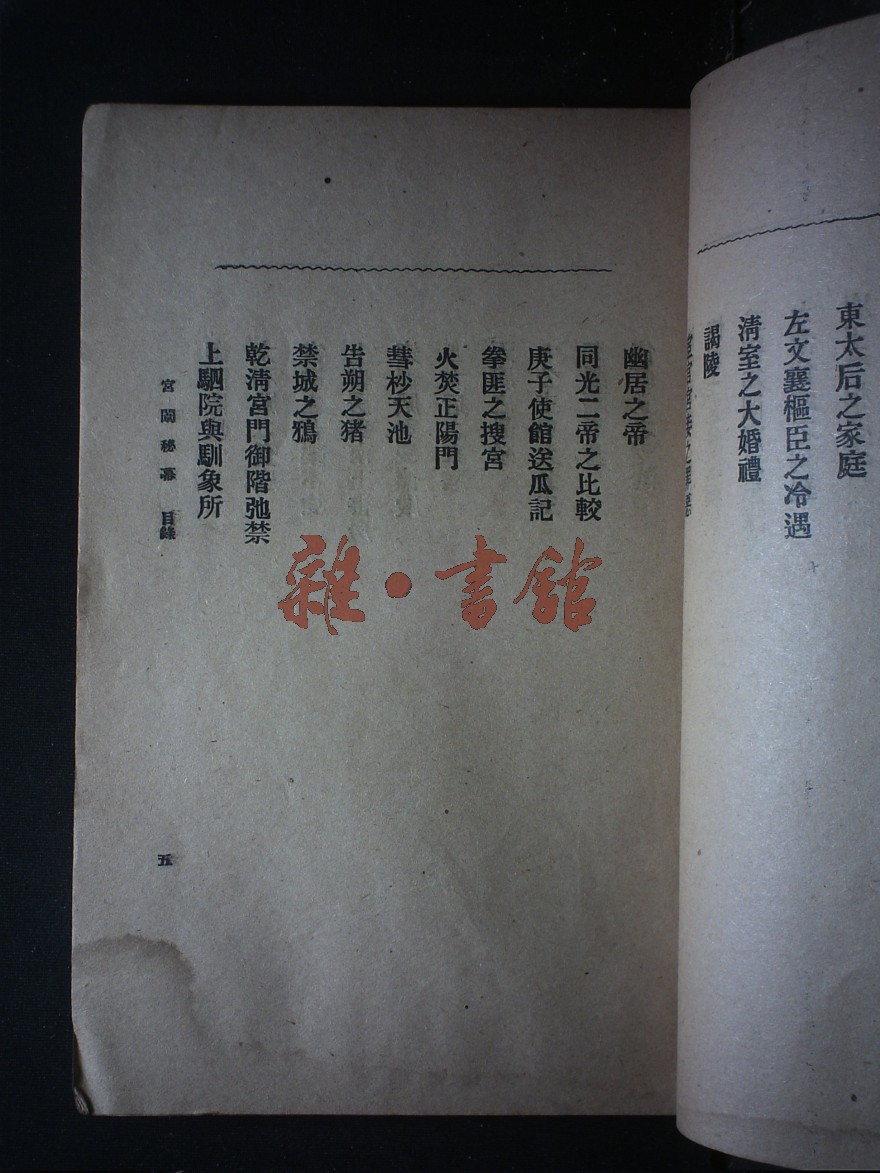 東太后之家庭
左文襄樞臣之冷遇
清室之大婚禮
謁陵
幽居之帝
同光二帝之比較
庚子使館送瓜記
拳匪之搜宮
火焚正陽門
彗杪天池
告朔之猪
禁城之鴉
乾淸宮門御階弛禁
上駟院與馴象所
宮闈秘幕 目錄
五
雜·書館